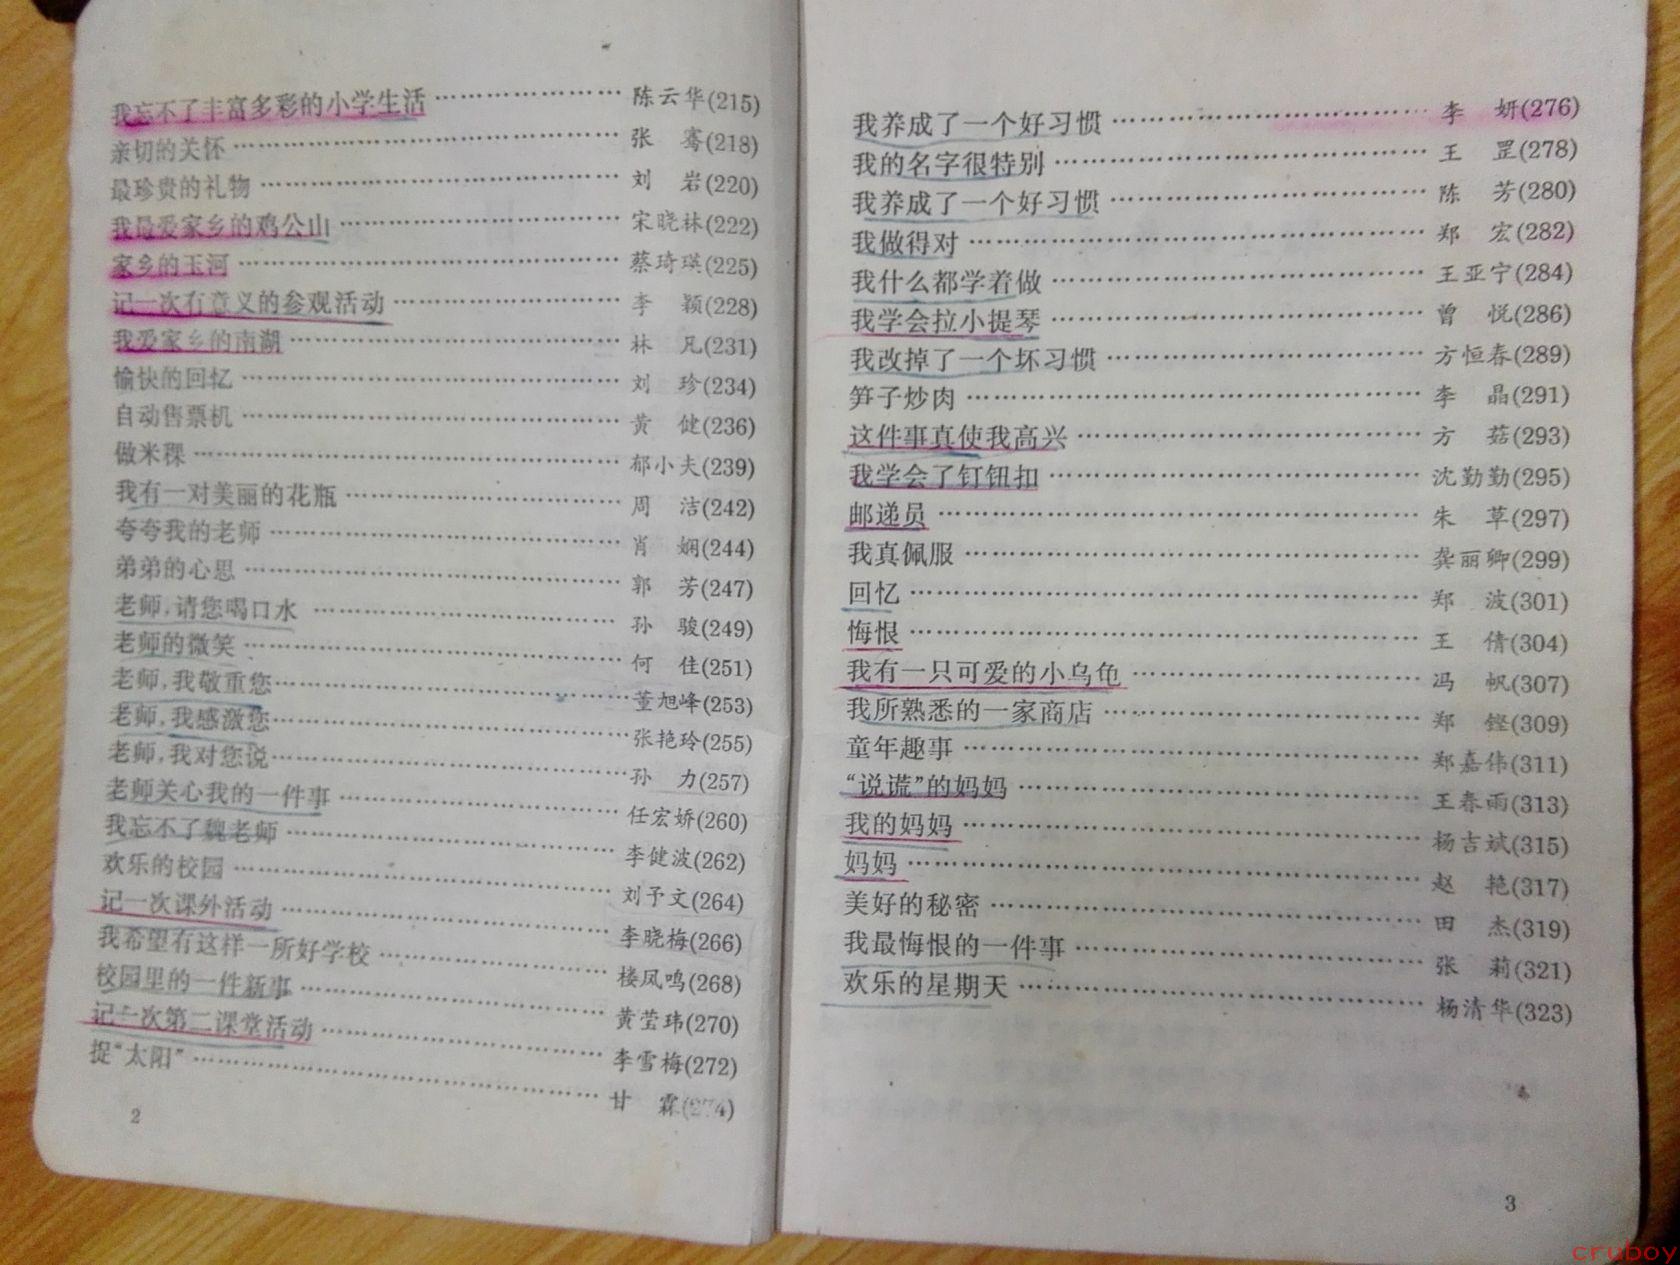 我忘不了丰富多彩的小学生活……………………陈云华(215)
亲切的关怀……………………张 骞(218)
最珍贵的礼物……………………刘 岩(220)
我最爱家乡的鸡公山……………………宋晓林(222)
家乡的玉河……………………蔡琦瑛(225)
记一次有意义的参观活动……………………李 颖(228)
我爱家乡的南湖……………………林 凡(231)
愉快的回忆……………………刘 珍(234)
自动售票机……………………黄 健(236)
做米稞……………………郁小夫(239)
我有一对美丽的花瓶……………………周 洁(242)
夸夸我的老师……………………肖 娴(244)
弟弟的心思……………………郭 芳(247)
老师,请您喝口水……………………孙 骏(249)
老师的微笑……………………何 佳(251)
老师,我敬重您……………………董旭峰(253)
老师,我感激您……………………张艳玲(255)
老师,我对您说……………………孙 力(257)
老师关心我的一件事……………………任宏娇(260)
我忘不了魏老师……………………李健波(262)
欢乐的校园……………………刘予文(264)
记一次课外活动……………………李晓梅(266)
我希望有这样一所好学校……………………楼凤鸣(268)
校园里的一件新事……………………黄莹玮(270)
记一次第二课堂活动……………………李雪梅(272)
捉“太阳”……………………甘 霖(274)
2
我养成了一个好习惯……………………李 妍(276)
我的名字很特别……………………王 罡(278)
我养成了一个好习惯……………………陈 芳(280)
我做得对……………………郑 宏(282)
我什么都学着做……………………王亚宁(284)
我学会拉小提琴……………………曾 悦(286)
我改掉了一个坏习惯……………………方恒春(289)
笋子炒肉……………………李 晶(291)
这件事真使我高兴……………………方 菇(293)
我学会了钉钮扣……………………沈勤勤(295)
邮递员……………………朱 草(297)
我真佩服……………………龚丽卿(299)
回忆……………………郑 波(301)
悔恨……………………王 倩(304)
我有一只可爱的小乌龟……………………冯 帆(307)
我所熟悉的一家商店……………………郑 铿(309)
童年趣事……………………郑嘉伟(311)
“说谎”的妈妈……………………王春雨(313)
我的妈妈……………………杨吉斌(315)
妈妈……………………赵 艳(317)
美好的秘密……………………田 杰(319)
我最悔恨的一件事……………………张 莉(321)
欢乐的星期天……………………杨清华(323)
3
cruboy